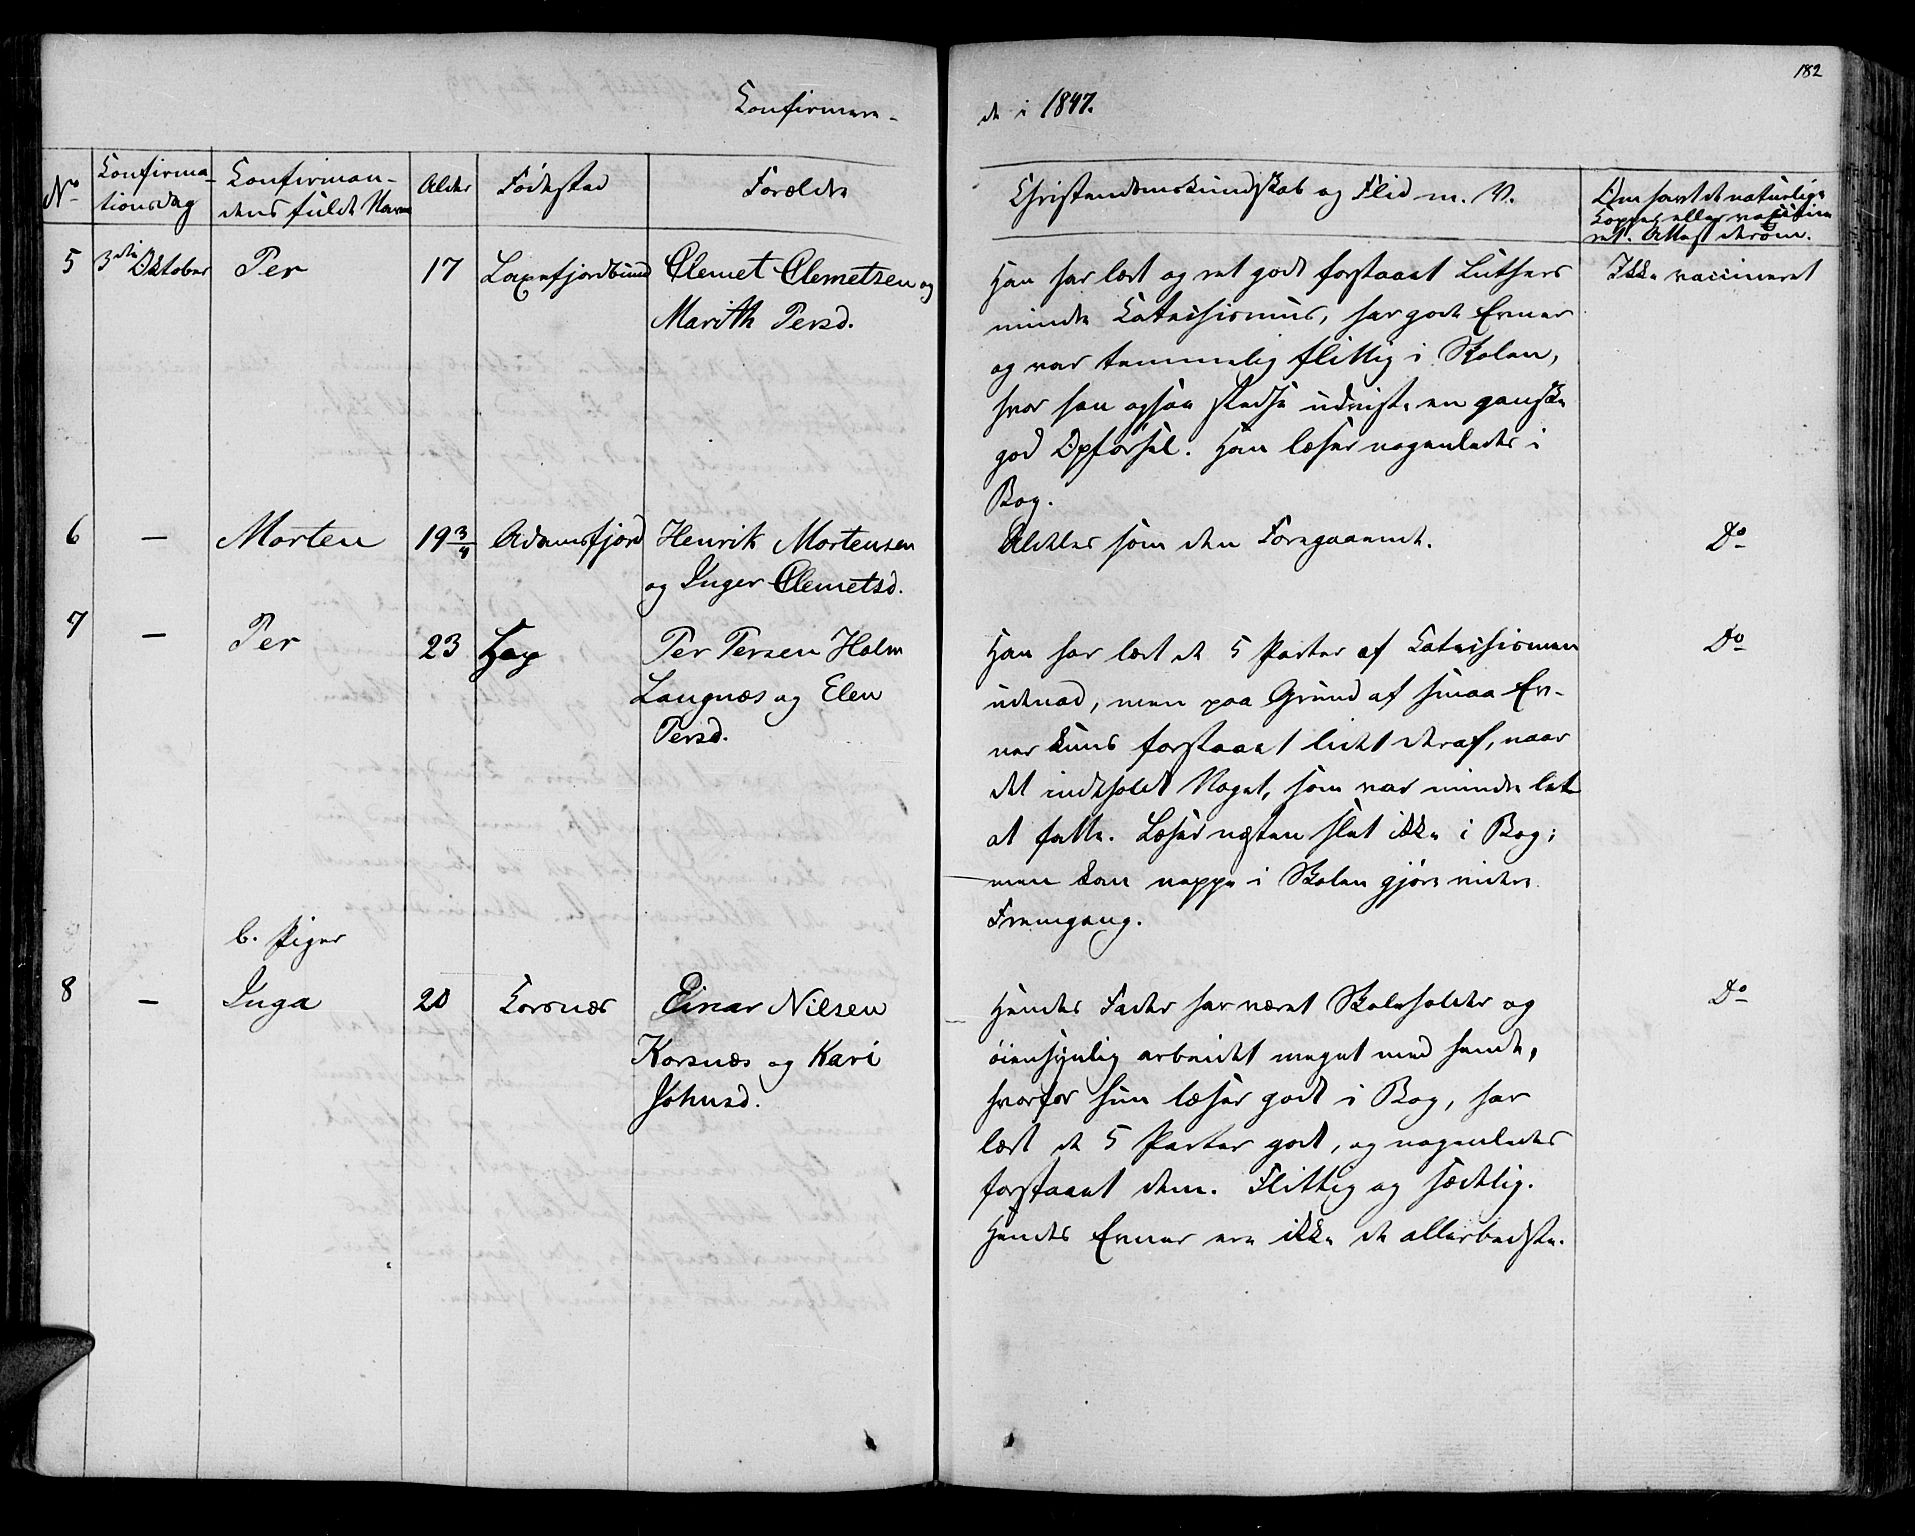 182
Confirmere-
de i 1847.
No
Confirma-
tionsdag
Confirman-
dens fulde Navn
Alder
Fødested
Forældre
Christendomskundskab og Flid m. V.
Om havt de naturlige
Kopper eller vaccine-
ret. Attest derom.
5 3die Oktober Per 17 Laxefjordbund Clemet Clemetsen og
Marith Persd.
Han har lært og ret godt forstaaet Luthers
mindre Catechismus, har gode Evner
og var temmelig flittig i Skolen,
hvor han ogsaa stedse udviste en ganske
god Opførsel. Han læser nogenledes i
Bog.
Ikke vaccineret
6 — Morten 19 3/4 Adamsfjord Henrik Mortensen
og Inger Clemetsd.
Aldeles som den Foregaaende.
Do
7 — Per 23 Hop Per Persen Holm
Langnæs og Elen
Persd.
Han har lært de 5 Parter af Catechismen
udenad, men paa Grund af smaa Ev-
ner kuns forstaaet lidet deraf, naar
det indeholdt Noget, som var mindre let
at fatte. Læser næsten slet ikke i Bog;
men kan neppe i Skolen gjøre videre
Fremgang.
Do
b. Piger
8 — Inga 20 Corsnæs Einar Nilsen
Korsnæs og Kari
Johnsd.
Hendes Fader har været Skoleholder og
øiensynlig arbeidet meget med hende,
hvorfor hun læser godt i Bog, har
lært de 5 Parter godt, og nogenledes
forstaaet dem. Flittig og sædelig.
Hendes Evner ere ikke de allerbedste.
Do